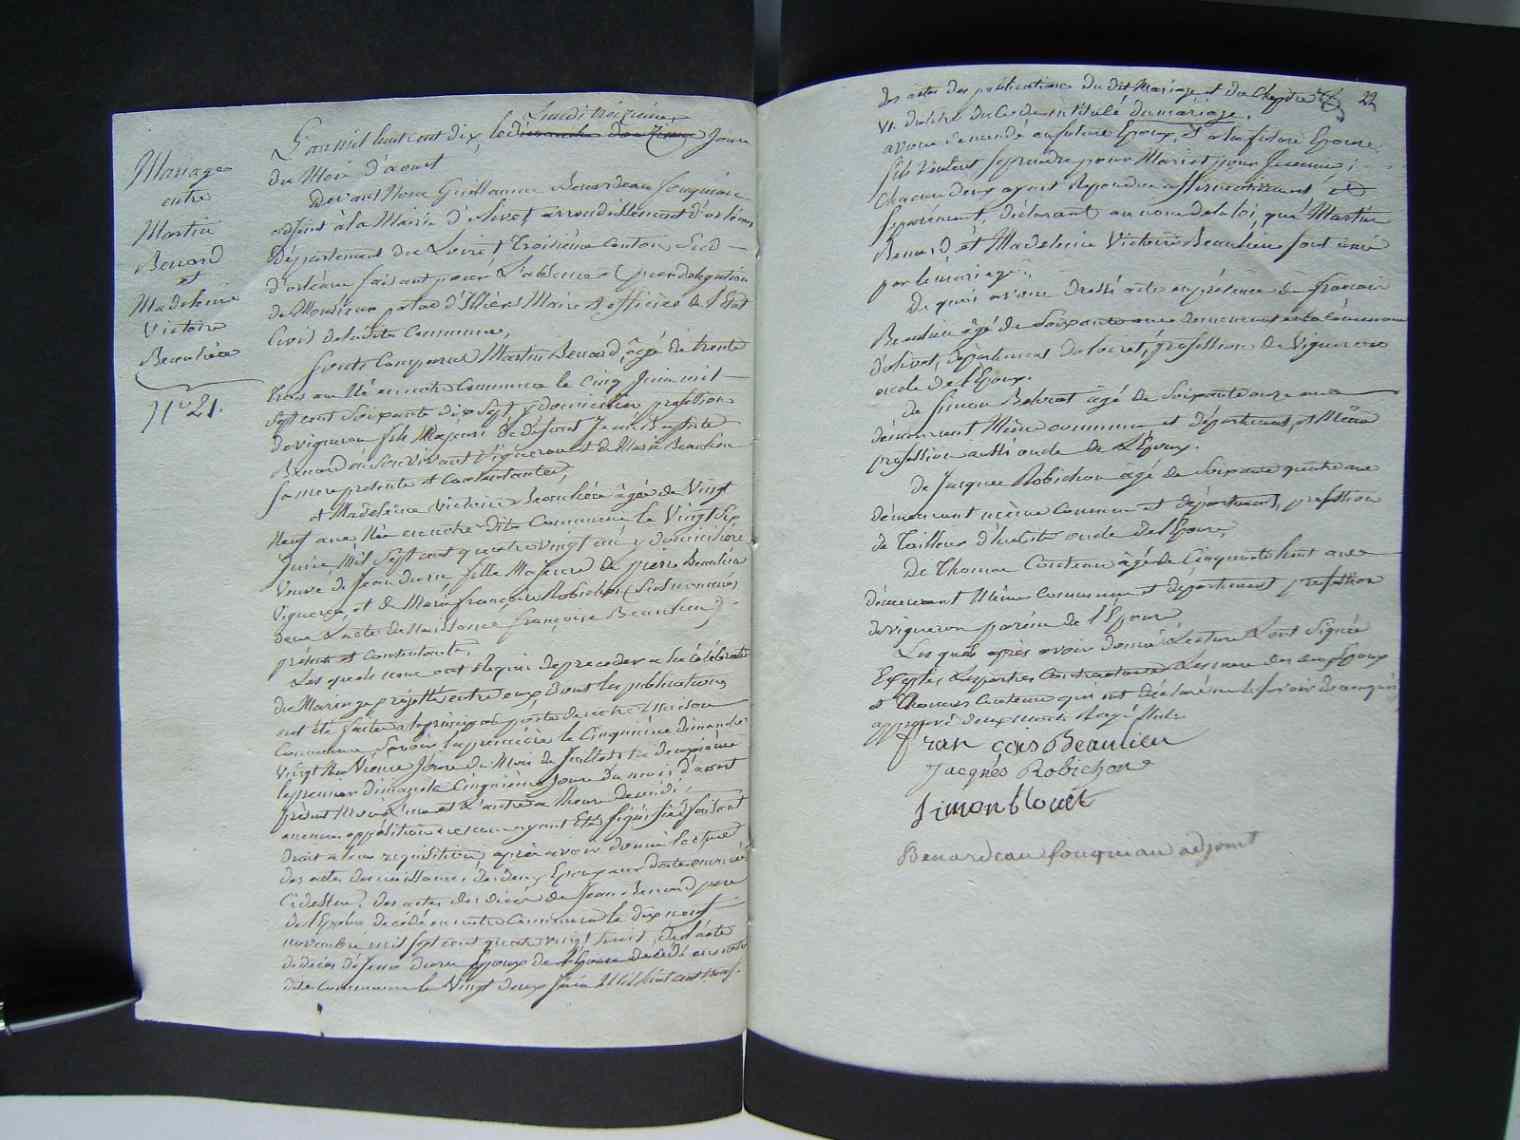 Mariage
entre
Martin
Benard
et
Madeleine
Victoire
Beaulieu
N° 21.
Lundi treizieme
L'an mil huit cent dix, le dimanche douzieme Jour
du Mois d'aout
Devant Nous Guillaume Benardeau fouqueau
adjoint à la Mairie d'Olivet arrondissement d'orléans
Département du Loiret, troisième Canton, Sud
d'orléans faisant pour l'absence et par délégation
de Monsieur Maire et officier de l'Etat
Civil de la dite Commune,
Sont Comparus Martin Benard, âgé de trente
trois ans Né en notre Commune le cinq Juin mil
sept cent soixante dix sept, y domicilié profession
de vigneron fils Majeur de défunt Jean Benard
en son vivant Vigneron et de Marie Beaulieu
sa mere présente et consentante,
et Madeleine Victoire Beaulieu âgée de Vingt
Neuf ans Née en notre dite Commune le Vingt Six
Juin Mil Sept cent quatre vingt un y domiciliée
Veuve de Jean fille Majeure de pierre Beaulieu
Vigneron, et de Marie françoise Robichon (
l'acte de Naissance françoise Beaulieu)
présens et consentants,
Les quels nous ont Requis de proceder a la Célébration
du Mariage projetté entre eux dont les publications
ont été faites a la principale porte de notre Maison
Commune, Savoir la premiere le Cinquieme dimanche
Vingt Neuvieme Jour du Mois de Juillet la deuxieme
le premier dimanche Cinquieme Jour du mois d'aout
présent Mois L'une et L'autre a l'heure de midi,
aucune opposition ne nous ayant Eté Signifiée faisant
droit a leur requisition, après avoir donné lecture
des actes de naissance des deux Epoux
Cidessus, des actes de décès de Jean Benard pere
de l'Epoux décédé en notre Commune le dix neuf
novembre mil sept cent quatre vingt trois, de l'acte
de décès de Jean Epoux de l'Epouse décédé en notre
dite Commune le Vingt deux Juin Mil huit cent
22
des actes des publications du dit Mariage et du Chapitre
VI. du titre du Code intitulé du mariage,
avons demandé au futur Epoux, et a la future Epouse,
s'ils veulent se prendre pour Mari et pour femme;
Chacun d'eux ayant Répondu affirmativement et
Séparement, déclarons au nom de la loi, que Martin
Benard et Madeleine Victoire Beaulieu sont unis
par le mariage.
De quoi avons dressé acte en présence de francois
Beaulieu âgé de Soixante ans demeurant en la Commune
d'olivet, département du loiret, profession de Vigneron
oncle de l'Epoux.
de Simon Blouet âgé de Soixante onze ans
demeurant Même commune et département, et Même
profession aussi oncle de l'Epoux.
de Jacques Robichon âgé de Soixante quatre ans
demeurant même Commune et département, profession
de Tailleur d'habits oncle de l'Epouse,
De Thomas Couteau âgé de Cinquante huit ans
demeurant Même Commune et département profession
de vigneron parein de l'Epouse
Les quels après avoir donné Lecture L'ont Signée
Excepté Les parties Contractantes Les mere des deux Epoux
et Thomas Couteau qui ont déclaré ne le savoir de ce enquis
approuvé deux mots Rayé Nuls
françois Beaulieu
Jacques Robichon
Simon blouet
Benardeau fouqueau adjoint